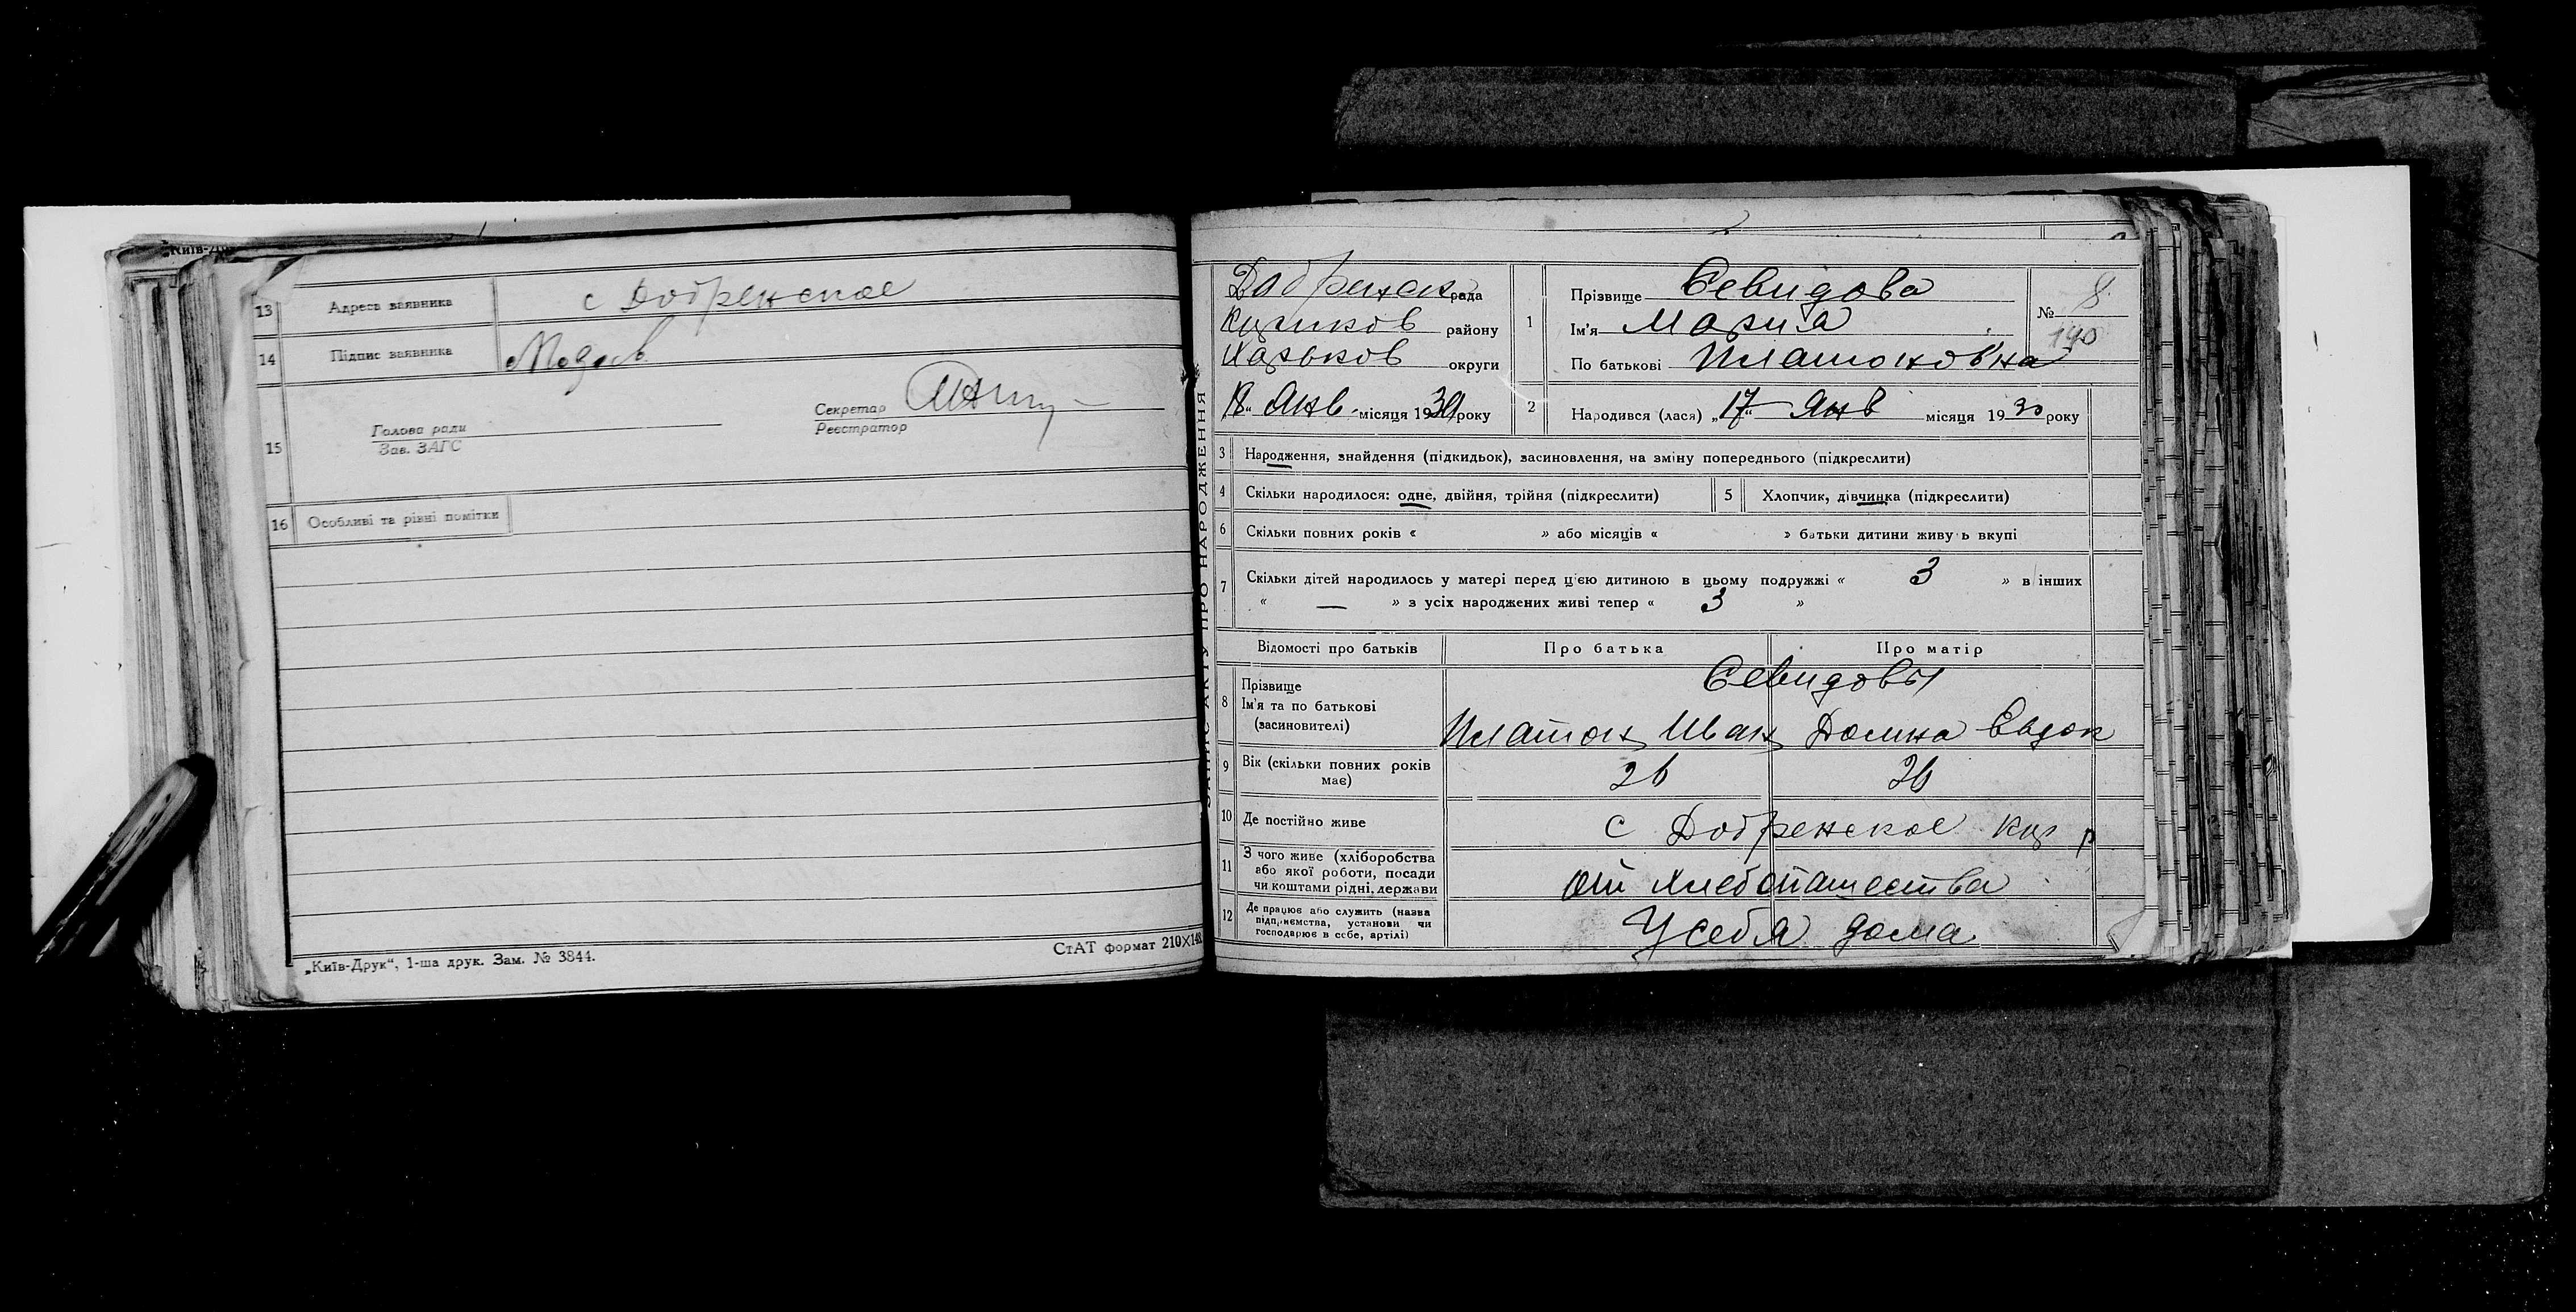 „Київ-Др
13 Адреса заявника с Добренское
14 Підпис заявника
15 Голова ради
Зав. ЗАГС
Секретар
Реєстратор
16 Особливі та різні помітки
„Київ-Друк“, 1-ша друк. Зам. № 3844.
СтАТ формат 210×148
ЗАПИС АКТУ ПРО НАРОДЖЕННЯ
Добренск рада
району
Харьков округи
18 „ Янв. місяця 1930 року
1 Прізвище Севидова
Ім’я Мария
По батькові Платоновна
№ 8
190
2 Народився (лася) „17“ Янв місяця 1930 року
3 Народження, знайдення (підкидьок), засиновлення, на зміну попереднього (підкреслити)
4 Скільки народилося: одне, двійня, трійня (підкреслити)
5 Хлопчик, дівчинка (підкреслити)
6 Скільки повних років « » або місяців « » батьки дитини живуь вкупі
7 Скільки дітей народилось у матері перед цією дитиною в цьому подружжі « 3 » в інших
« — » з усіх народжених живі тепер « 3 »
Відомості про батьків Про батька Про матір
8 Прізвище
Ім’я та по батькові
(засновителі)
Севидовы
Платон Иван Домна Евдок
9 Вік (скільки повних років
має)
26 26
10 Де постійно живе с Добренское р
11 З чого живе (хліборобства
або якої роботи, посади
чи коштами рідні, держави
от хлебопашества
12 Де працює або служить (назва
підприємства, установи чи
господарює в себе, артілі)
У себя дома